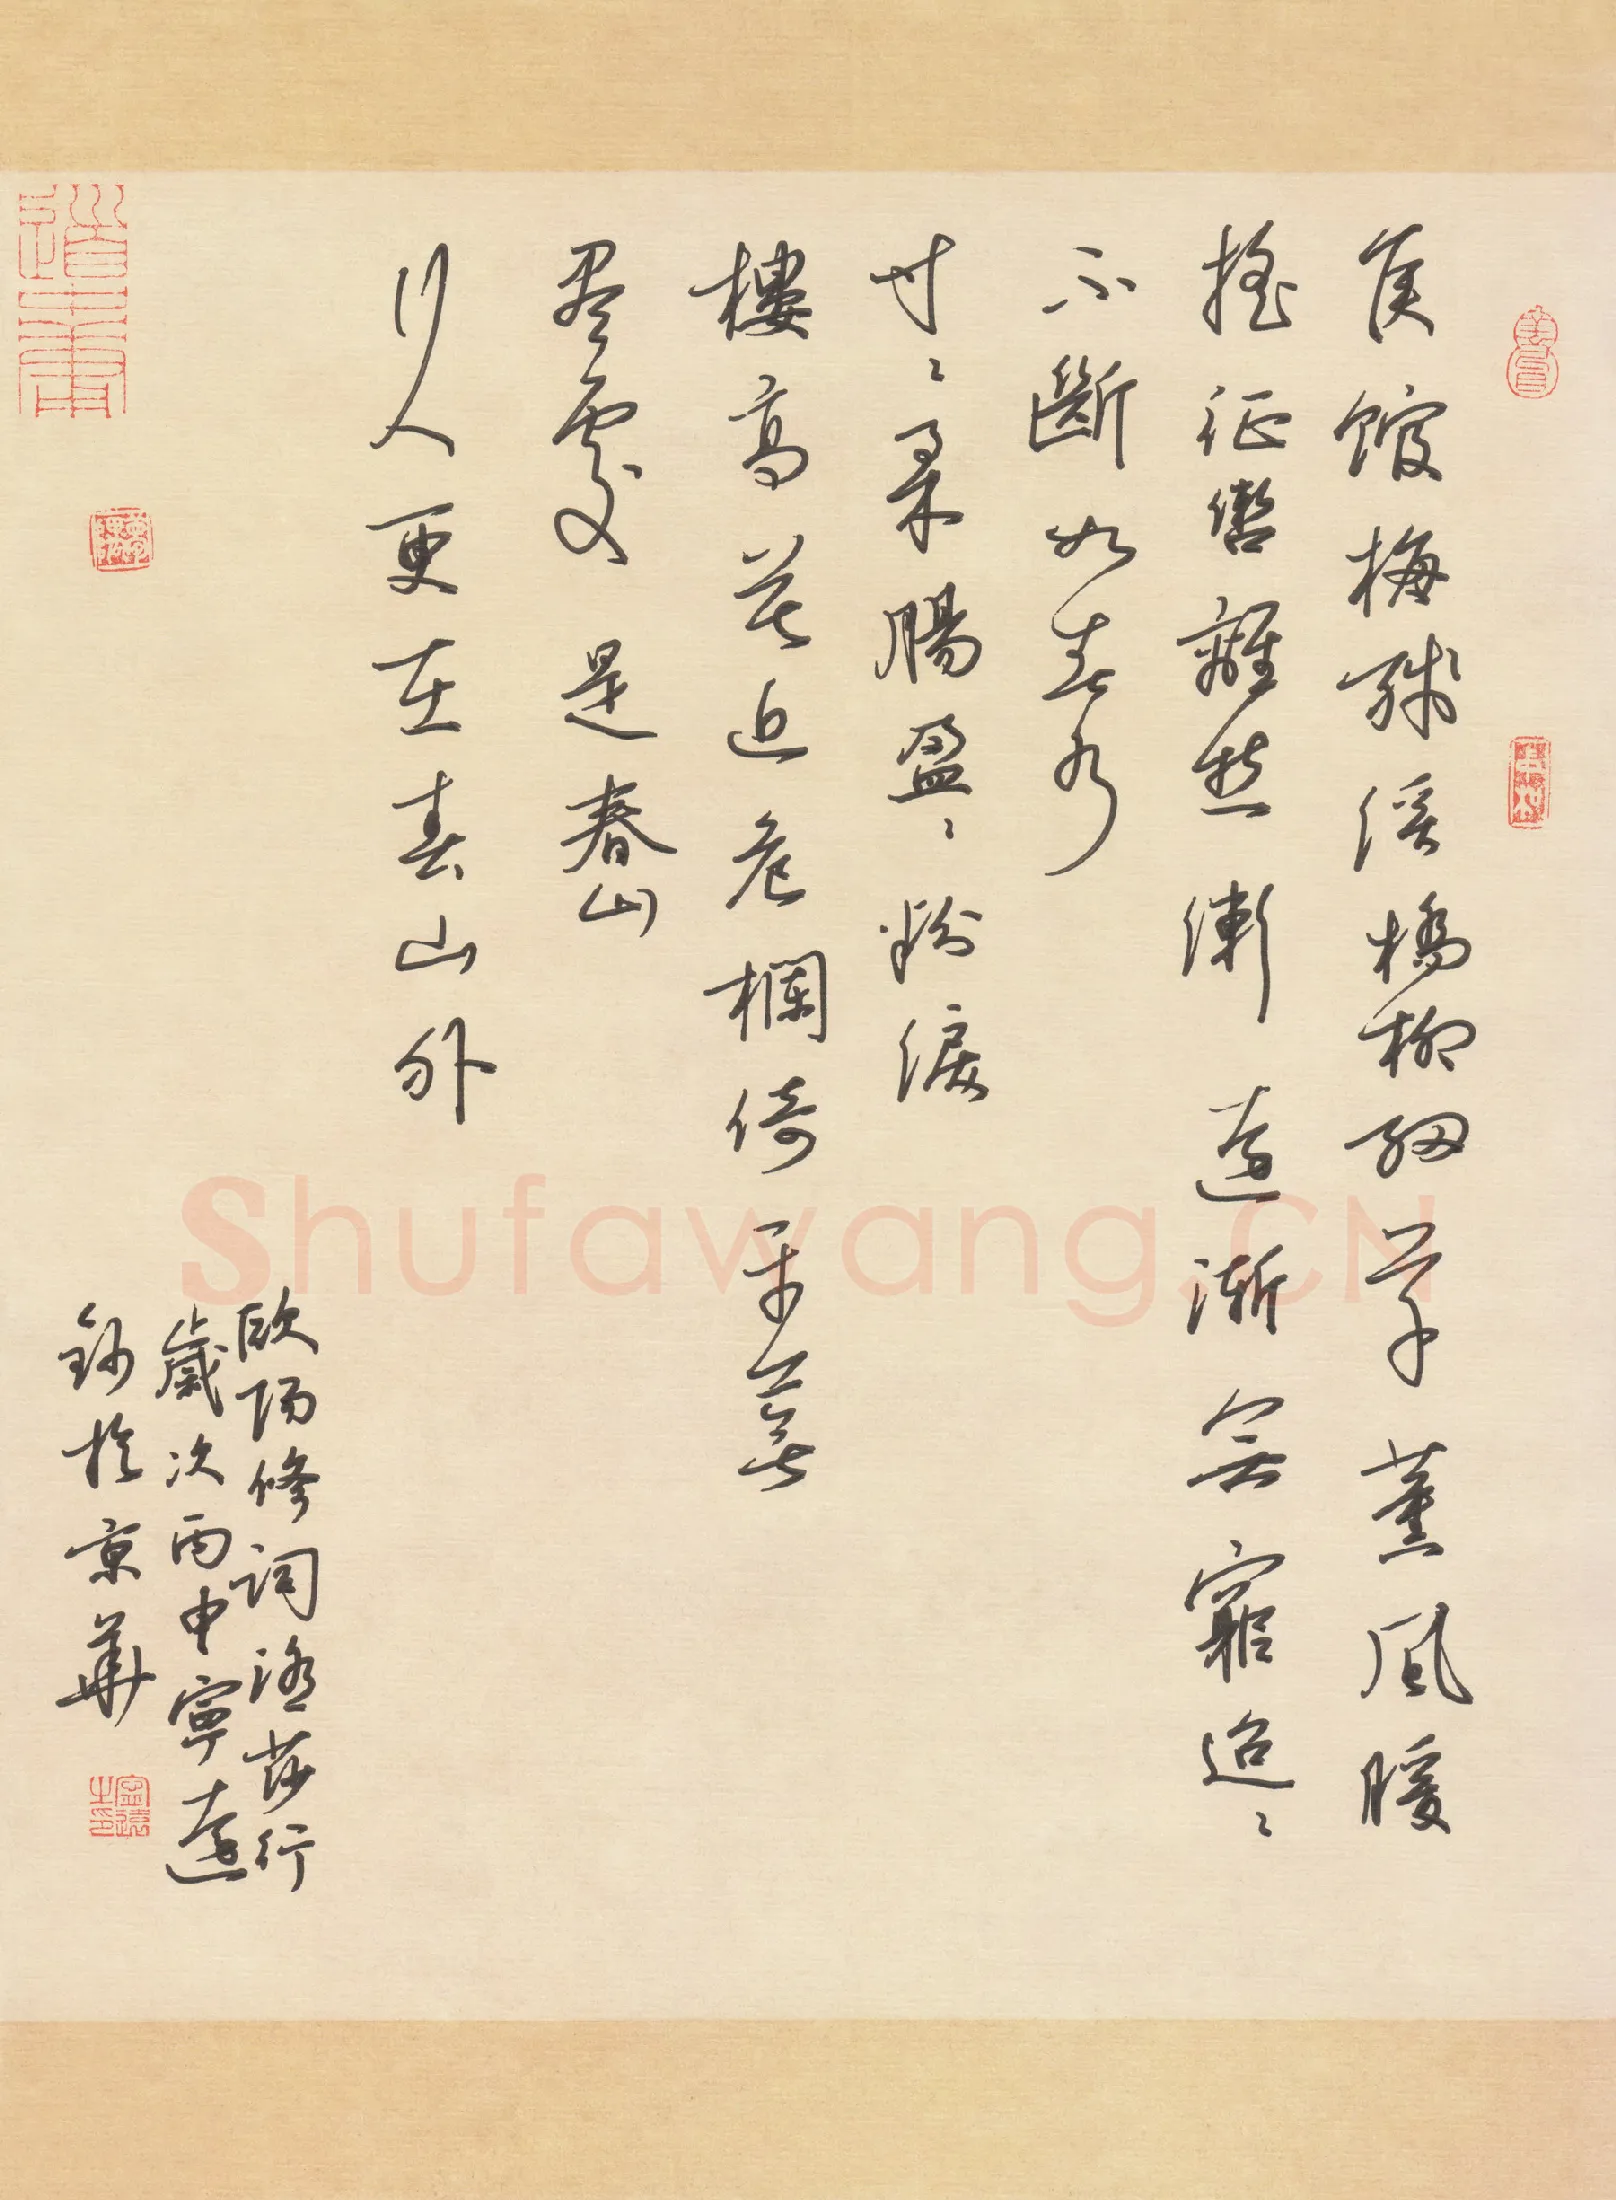 候館梅殘溪橋柳細草薰風暖
搖征轡離愁漸遠漸無窮迢〻
不斷如春水
寸〻柔腸盈〻粉淚
樓高莫近危欄倚平蕪
盡處是春山
行人更在春山外
歐陽修詞踏莎行
歲次丙申寧遠
鈔於京華
寧遠之印
Shufawang.CN